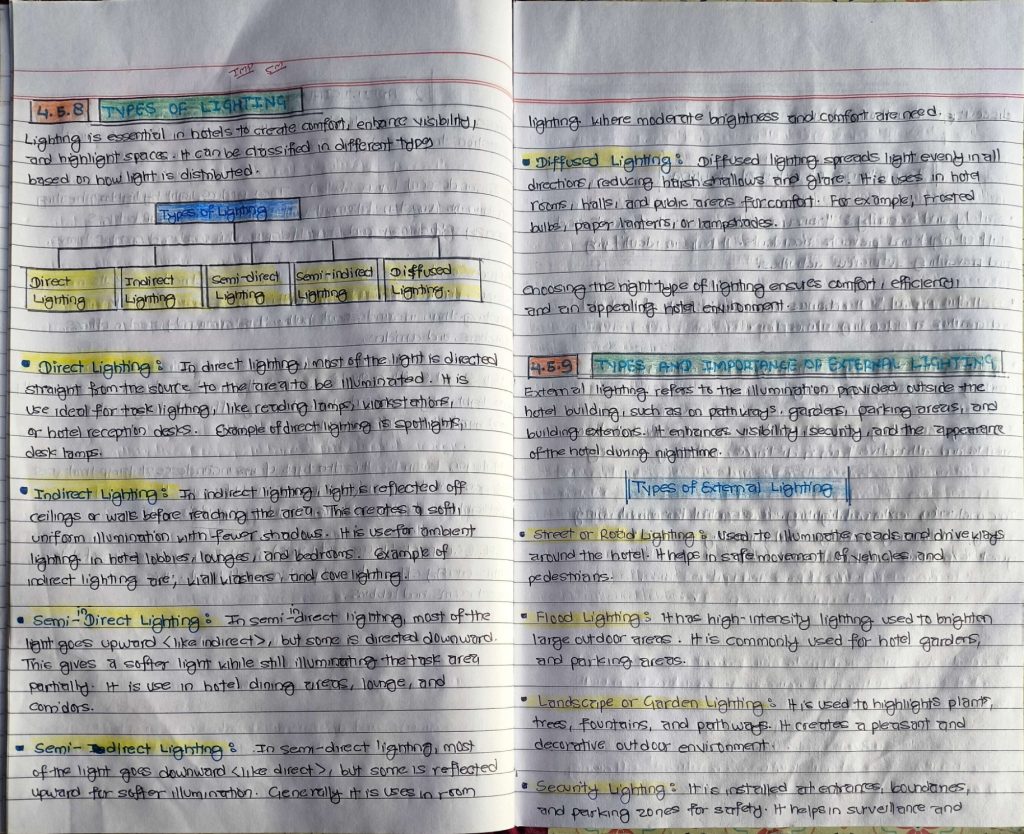 IMP
4.5.8 TYPES OF LIGHTING
Lighting is essential in hotels to create comfort, enhance visibility,
and highlight spaces. It can be classified in different types
based on how light is distributed.
Types of Lighting
Direct Lighting
Indirect Lighting
Semi-direct Lighting
Semi-indirect Lighting
Diffused Lighting.
• Direct Lighting: In direct lighting, most of the light is directed
straight from the source to the area to be illuminated. It is
use ideal for task lighting, like reading lamps, workstations,
or hotel reception desks. Example of direct lighting is spotlights,
desk lamps.
• Indirect Lighting: In indirect lighting, light is reflected off
ceilings or walls before reaching the area. This creates a soft,
uniform illumination with fewer shadows. It is use for ambient
lighting in hotel lobbies, lounges, and bedrooms. Example of
indirect lighting are, wall washers, and cove lighting.
• Semi-inDirect Lighting: In semi-indirect lighting, most of the
light goes upward <like indirect>, but some is directed downward.
This gives a softer light while still illuminating the task area
partially. It is use in hotel dining areas, lounge, and
corridors.
• Semi-direct Lighting: In semi-direct lighting, most
of the light goes downward <like direct>, but some is reflected
upward for softer illumination. Generally it is uses in room
lighting where moderate brightness and comfort are need.
• Diffused Lighting: Diffused lighting spreads light evenly in all
directions, reducing harsh shallows and glare. It is uses in hotel
rooms, halls, and public areas for comfort. For example, Frosted
bulbs, paper lanterns, or lampshades.
choosing the right type of lighting ensures comfort, efficieny,
and an appealing hotel environment.
4.5.9 TYPES AND IMPORTANCE OF EXTERNAL LIGHTING
External lighting refers to the illumination provided outside the
hotel building, such as on pathways, gardens, parking areas, and
building exteriors. It enhances visibility, security, and the appearance
of the hotel during nighttime.
Types of External Lighting
• Street or Road Lighting: Used to illuminate roads and driveways
around the hotel. It helps in safe movement of vehicles and
pedestrians.
• Flood Lighting: It has high-intensity lighting used to brighten
large outdoor areas. It is commonly used for hotel gardens,
and parking areas.
• Landscape or Garden Lighting: It is used to highlights plants,
trees, fountains, and pathways. It creates a pleasant and
decorative outdoor environment.
• Security Lighting: It is installed at entrances, boundaries,
and parking zones for safety. It helps in surveillance and